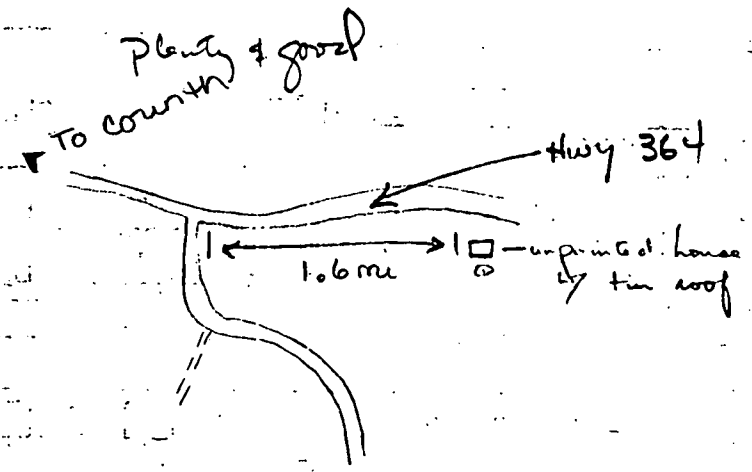 Plenty & good
To Corinth
Hwy 364
1.6 mi
unpainted house
w/ tin roof